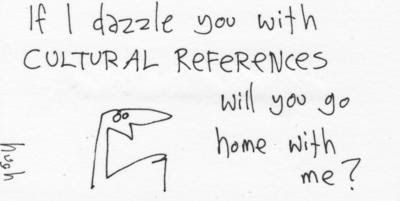 If I dazzle you with
CULTURAL REFERENCES
will you go
home with
me?
hugh